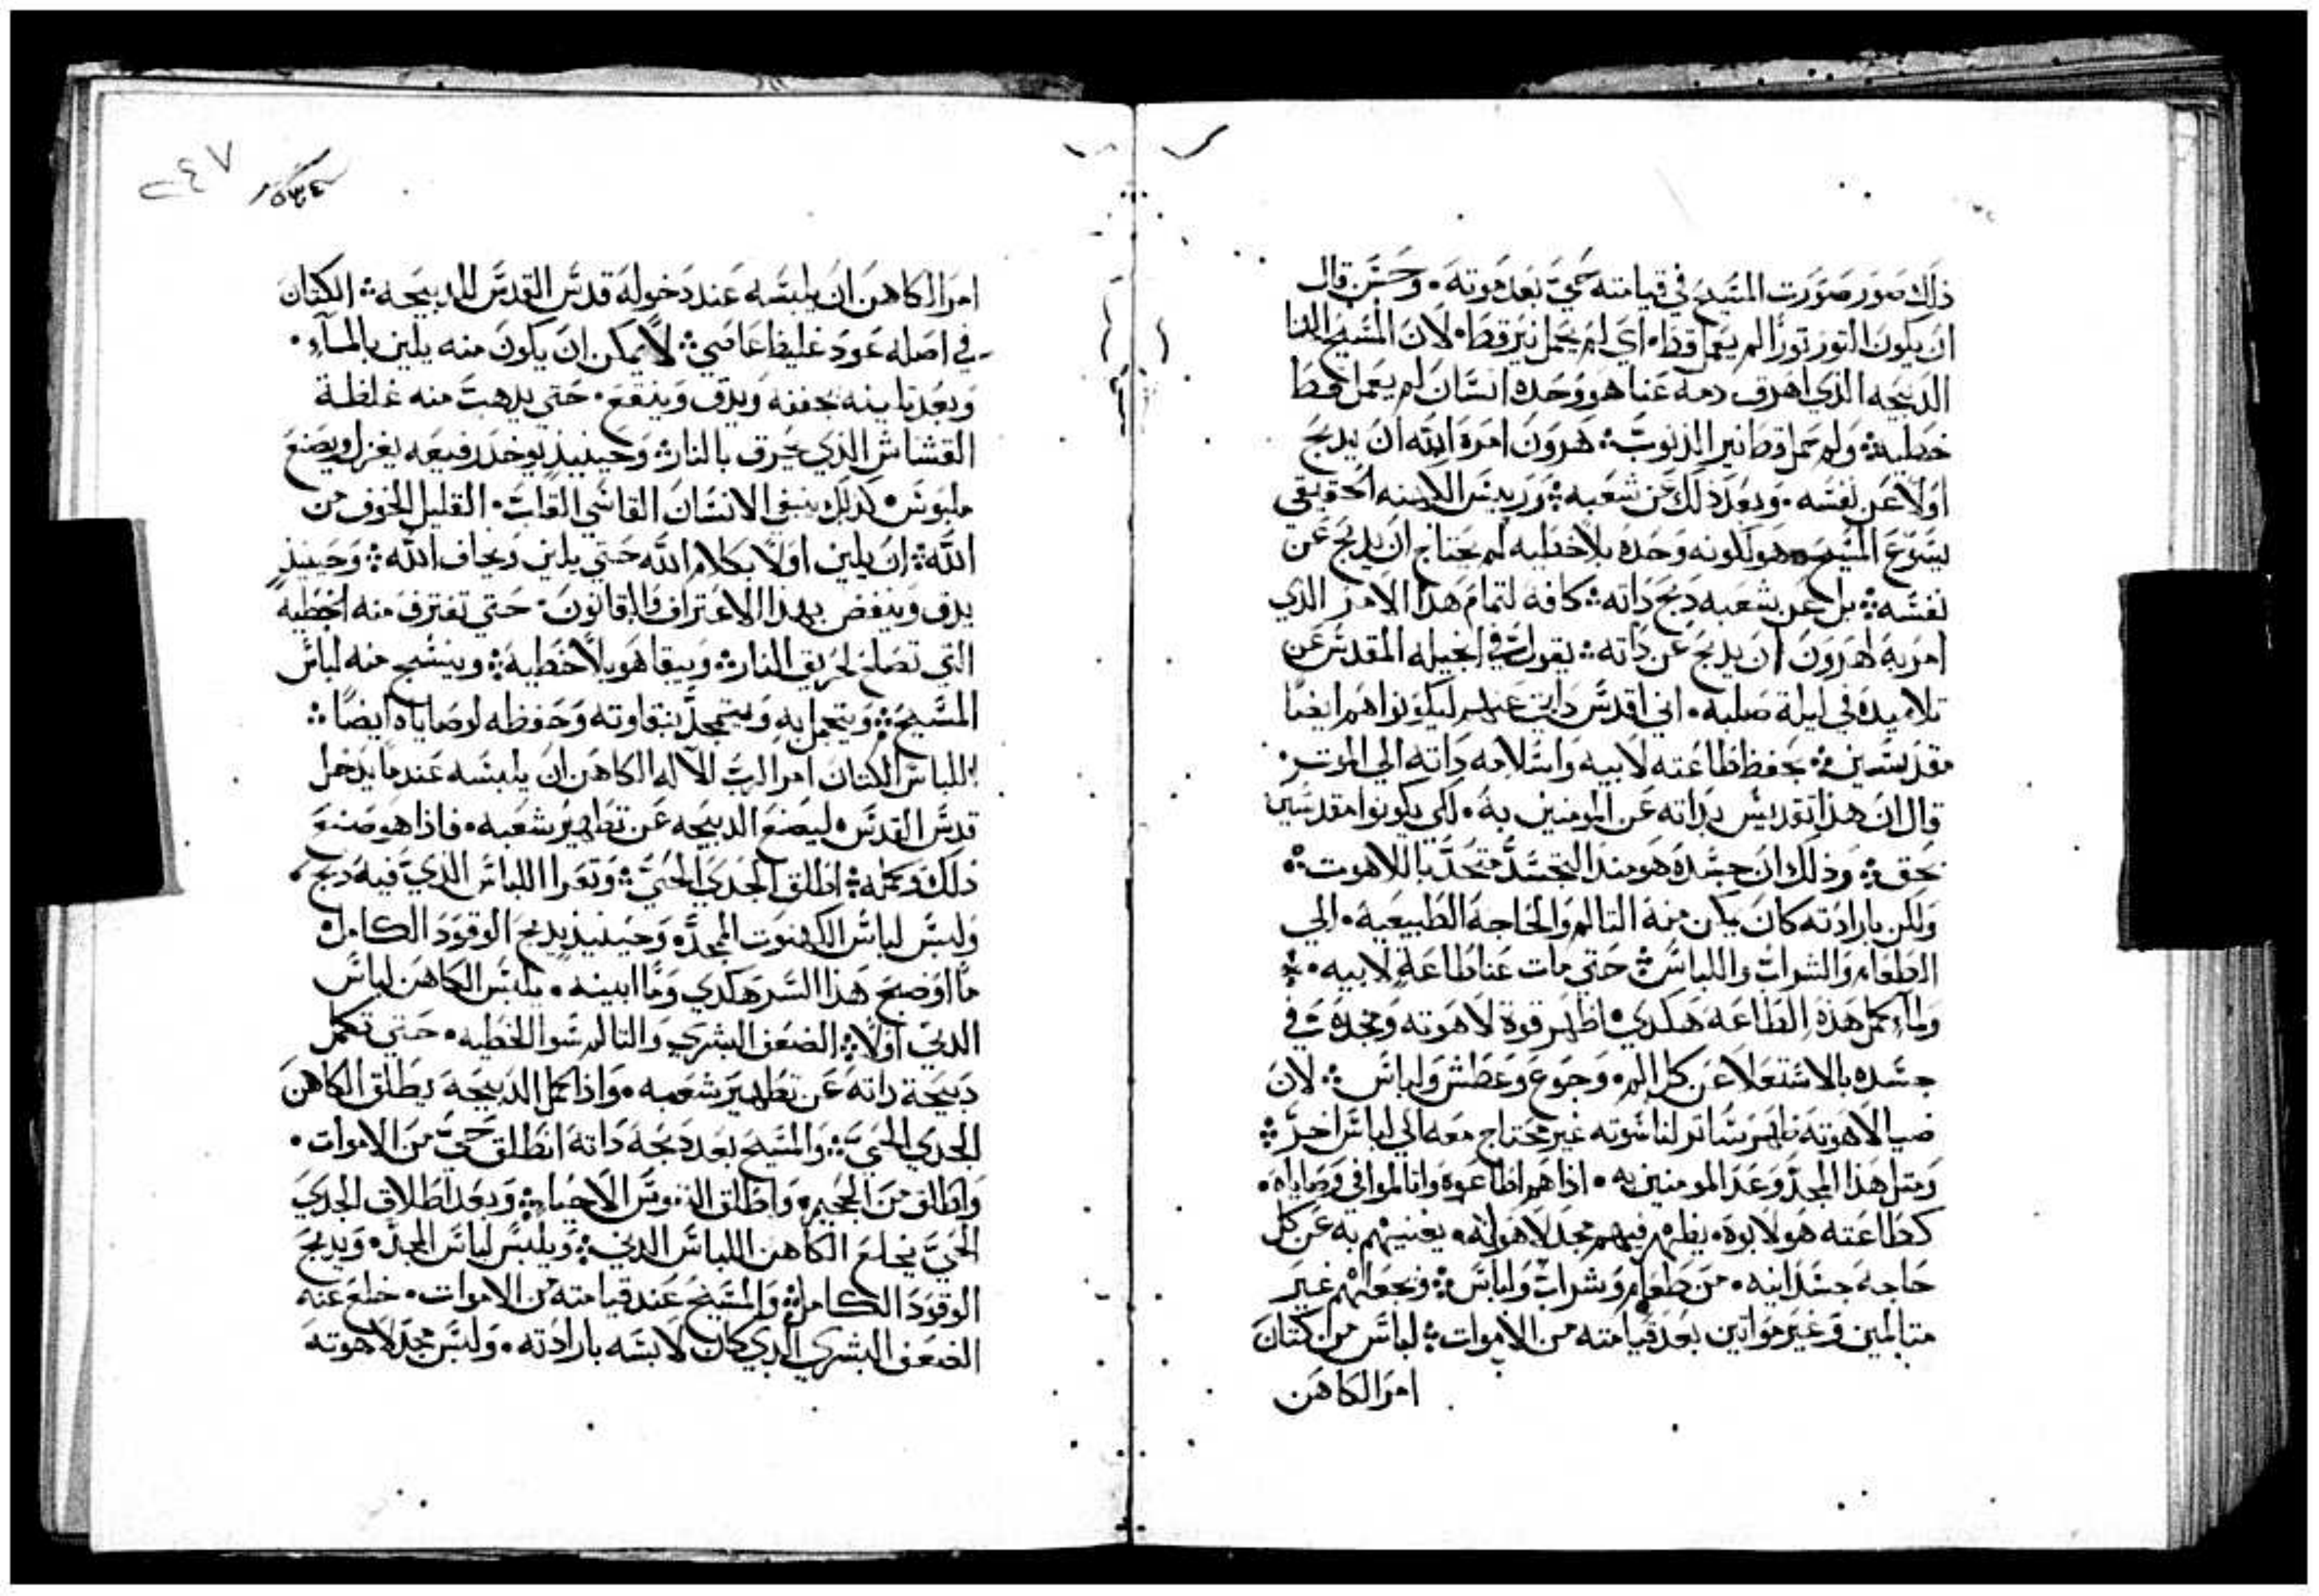 ذلك صور صورت المسيح في قيامته حي بعد موته. وحسن قال
ان يكون التور تورًا لم يعمل قط. اي لم يحمل نير قط. لان المسيح الهنا
الدبيحه الذي اهرق دمه عنا هو وحده انسان لم يعمل قط
خطيه: ولم يحمل قط نير الذنوب: هرون امره الله ان يدبح
اولًا عن نفسه. وبعد ذلك عن شعبه: وريس الكهنه الحقيقي
يسوع المسيح هو لكونه وحده بلا خطيه لم يحتاج ان يدبح عن
نفسه: بل عن شعبه دبح داته: كافه لتمام هذا الامر الذي
امر به لهرون ان يدبح عن داته: يقول في انجيله المقدس عن
تلاميده في ليلة صلبه. اني اقدس داتي عنهم ليكونوا هم ايضًا
مقدسين: بحفظ طاعته لابيه واسلامه داته الي الموت:
قال ان هذا تقديس بداته عن المومنين به. لكي يكونوا مقدسين
بحق: وذلك ان جسده هو مند التجسد متحد باللاهوت:
ولكن بارادته كان يمكن منه التالم والحاجه الطبيعيه. الي
الطعام والشراب واللباس: حتي مات عنا طاعة لابيه.
ولما كمل هذه الطاعه هكدي. اظهر قوة لاهوته ومجده في
جسده بالاستعلا عن كل الم. وجوع وعطش ولباس: لان
ضيا لاهوته ظاهر ساتر لناسوته غير محتاج معه الي لباس اخر:
ومتل هذا المجد وعد المومنين به. اذا هم اطاعوه وانالموا في وصاياه.
كطاعته هو لابوه. يظهر فيهم مجد لاهوته. يغنيهم به عن كل
حاجه جسدانيه. من طعام وشراب ولباس: ويجعلهم غير
متالمين وغير مواتين بعد قيامته من الاموات: لباس من كتان
امر الكاهن
٢٤٧
امر الكاهن ان يلبسه عند دخوله قدس القدس للدبيحه: الكتان
في اصله عود غليظ عاصي: لا يمكن ان يكون منه يلين بالمآء.
وبعد تليينه يجففه ويدق وينقع. حتي يدهب منه غلظة
القشاش الذي يحرق بالنار: وحينيد يوخد رفيعه يغزل ويصنع
ملبوس. كدلك ينبغي الانسان القاسي القلب. القليل الخوف من
الله: ان يلين اولًا بكلام الله حتي يلين ويخاف الله: وحينيذ
يدق وينفض بهذا الاعتراف والقانون. حتي تفترق منه الخطيه
التي تصلح لحريق النار: ويبقا هو بلا خطية: وينسج منه لباس
المسيح: ويتجمل به ويتمجد بنقاوته وحفظه لوصاياه ايضًا:
اللباس الكتان امر الرب الاله الكاهن ان يلبسه عندما يدخل
قدس القدس. ليصنع الدبيحه عن تطهير شعبه. فاذا هو صنع
ذلك وكمله: اطلق الجدي الحي: وتعرا اللباس الذي فيه دبح.
ولبس لباس الكهنوت الممجده وحينيذ يدبح الوقود الكامل.
ما اوضح هذا السر هكدي وما ابينه. يلبس الكاهن لباس
الدني اولًا: الضعف البشري والتالم سوا الخطيه. حتي تكمل
دبيحة داته عن تطهير شعبه. واذا كمل الدبيحه يطلق الكاهن
الجدي الحي: والمسيح بعد دبحه داته انطلق حي من الاموات.
واطلق من الجحيم. واطلق النفوس الاحيا: وبعد اطلاق الجدي
الحي يخلع الكاهن اللباس الدني: ويلبس لباس المجد. ويدبح
الوقود الكامل: والمسيح عند قيامته من الاموات. خلع عنه
الضعف البشري الدي كان لابسه بارادته. ولبس مجد لاهوته